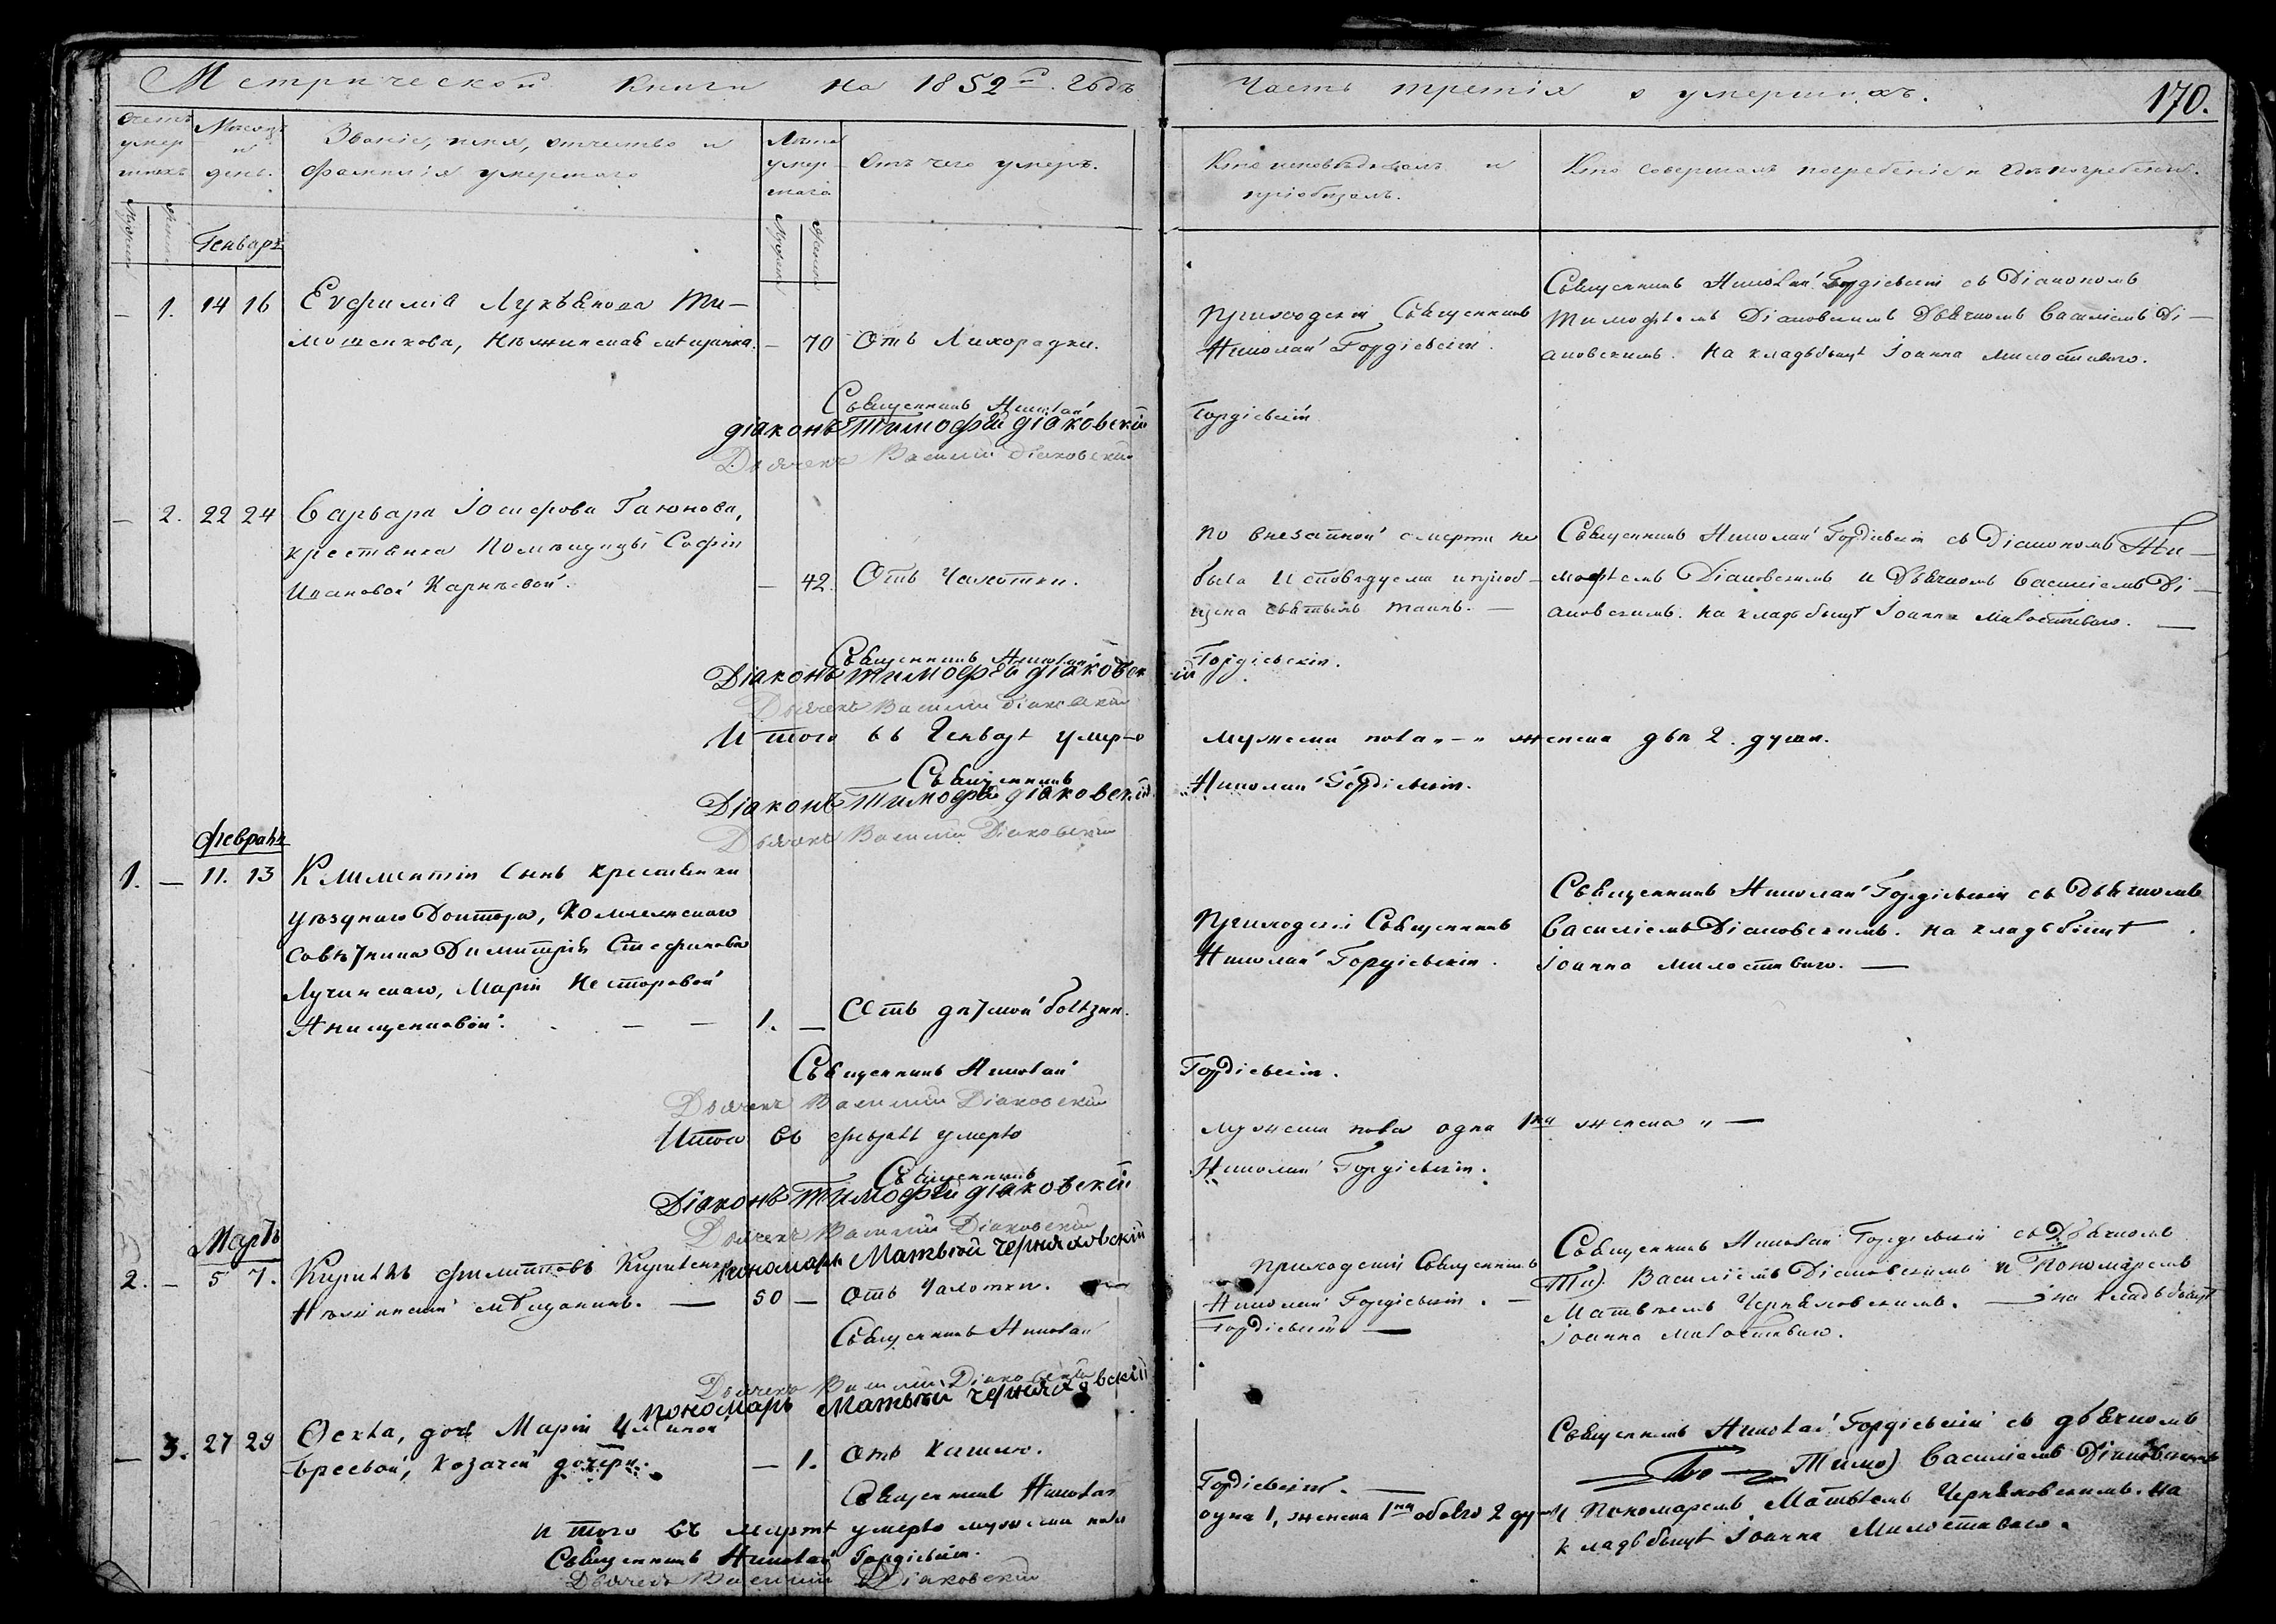 Метрической книги на 1852й годъ
Часть третія о умершихъ.
170.
Счетъ умер шихъ
Мѣсяцъ и день.
Званіе, имя, отчество и фамилія умершаго
Лѣта умер- шаго
Отъ чего умеръ.
Кто исповѣдывалъ и пріобщалъ.
Кто совершалъ погребеніе и гдѣ погребены.
Генварь
— 1. 14 16 Евфимія Лукьянова Ти-
мошенкова, Нѣжинская мѣщанка. — 70 Отъ Лихорадки.
Приходскій Священникъ
Николай Гордіевскій.
Священникъ Николай Гордіевскій съ Діакономъ
Тимофѣемъ Діаковскимъ Дьячкомъ Василіемъ Ді-
аковскимъ. На кладьбищѣ Іоанна Милостиваго.
Священникъ Николай Гордіевскій
діаконъ Тимофей діаковскій
Дьячекъ Василий Діаковский
— 2. 22 24 Варвара Іосифова Гаюнова,
крестьянка Помѣщицы Софіи
Ивановой Кариѣевой. — 42. Отъ Чахотки.
по внезапной смерти не
была Исповѣдуема и пріоб-
щена святыхъ таинъ. —
Священникъ Николай Гордіевскій съ Діакономъ Ти-
мофѣемъ Діаковскимъ и Дьячкомъ Василіемъ Ді-
аковскимъ. На кладьбищѣ Іоанна Милостиваго. —
Священникъ Николай Гордіевскій.
Діаконъ Тимофей діаковскій
Дьячекъ Василий Діаковский
Итого въ Генварѣ умерло мужеска пола „ – „ женска двѣ 2. души.
Священникъ Николай Гордіевскій.
Діаконъ Тимофей діаковский
Дьячекъ Василий Діаковский
Февраль
1. — 11. 13 Климентій сынъ крестьянки
уѣзднаго Доктора, Коллежскаго
Совѣтника Димитрія Стефанова
Лучинскаго, Маріи Несторовой
Анищенковой. — — 1. — Отъ дѣтской болѣзни.
Приходскій Священникъ
Николай Гордіевскій.
Священникъ Николай Гордіевскій съ Дьячкомъ
Василіемъ Діаковскимъ. На кладьбищѣ
Іоанна Милостиваго. —
Священникъ Николай Гордіевскій.
Дьячекъ Василий Діаковский
Итого въ февралѣ умерло мужеска пола одна 1на женска „ —
Священникъ Николай Гордіевскій.
Діаконъ Тимофей діаковскій
Дьячекъ Василий Діаковский
пономарь Матвѣй Черняховскій
Мартъ
2. — 5 7. Кириллъ Филипповъ
Нѣжинскій мѣщанинъ. — 50 — Отъ Чахотки.
Приходскій Священникъ
Николай Гордіевскій. —
Священникъ Николай Гордіевскій съ Дьячкомъ
Ти) Василіемъ Діаковскимъ и Пономаремъ
Матвѣемъ Черняховскимъ. — на кладьбищѣ
Іоанна Милостиваго.
Священникъ Николай Гордіевскій —
Дьячекъ Василий Діаковский
пономарь Матвѣй Черняховскій
— 3. 27 29 Ѳекла, дочь Маріи
козачей дочери. — 1. Отъ Кашлю.
Священникъ Николай Гордіевскій съ дьячкомъ
Тимо) Василіемъ Діаковскимъ
и Пономаремъ Матвѣемъ Черняховскимъ. На
кладьбищѣ Іоанна Милостиваго.
Священникъ Николай Гордіевскій. —
Итого въ Мартѣ умерло мужеска пола одна 1, женска 1на обоего 2 души
Священникъ Николай Гордіевскій.
Дьячекъ Василий Діаковский